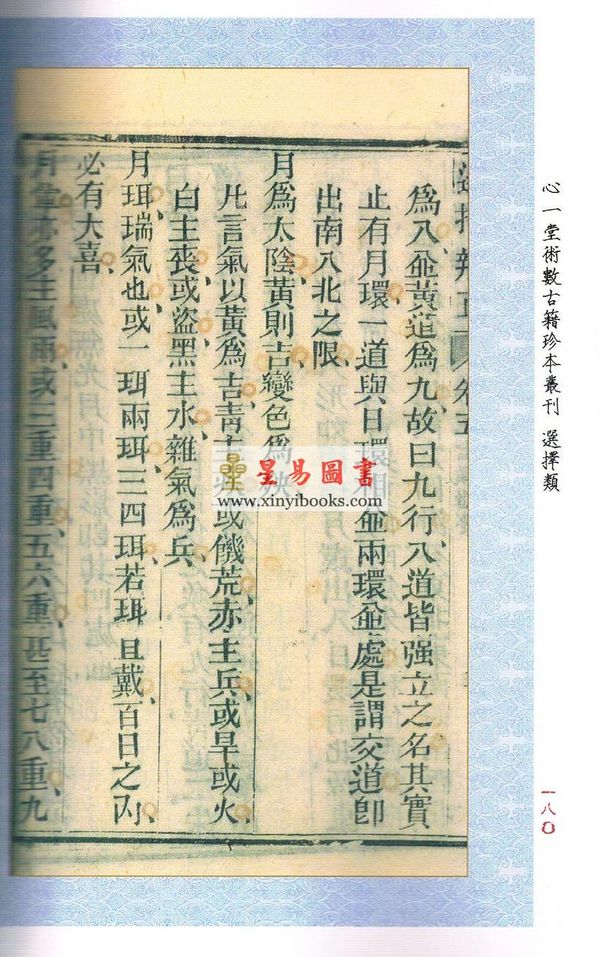 心一堂術數古籍珍本叢刊 選擇類
一八〇
為八並黃道為九故曰九行八道皆强立之名其實
止有月環一道與日環相並兩環並處是謂交道卽
出南入北之限
月為太陰黃則吉變色為
凡言氣以黃為吉靑主 或饑荒赤主兵或旱或火
白主喪或盜黑主水雜氣為兵
月珥瑞氣也或一珥兩珥三四珥若珥且戴百日之內
必有大喜
月暈亦多主風雨或三重四重五六重甚至七八重九
星易圖書
www.xinyibooks.com